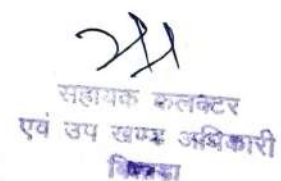 सहायक कलक्टर
एवं उप खण्ड अधिकारी